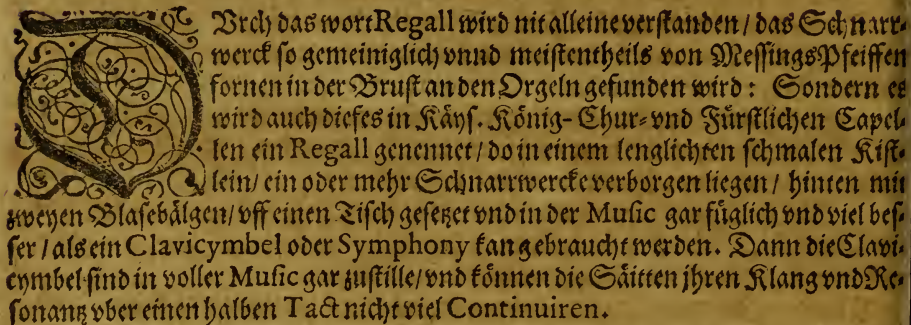 DVrch das wort Regall wird nit alleine verstanden / das Schnarr-
werck so gemeiniglich vnnd meistentheils von MessingsPfeiffen
fornen in der Brust an den Orgeln gefunden wird: Sondern es
wird auch dieses in Käys. König- Chur- vnd Fürstlichen Capel-
len ein Regall genennet / do in einem lenglichten schmalen Kist-
lein / ein oder mehr Schnarrwercke verborgen liegen / hinten mit
zweyen Blasebälgen / vff einen Tisch gesetzet vnd in der Music gar füglich vnd viel bes-
ser / als ein Clavicymbel oder Symphony kan gebraucht werden. Dann die Clavi-
cymbel sind in voller Music gar zu stille / vnd können die Säitten jhren Klang vnd Re-
sonantz vber einen halben Tact nicht viel Continuiren.